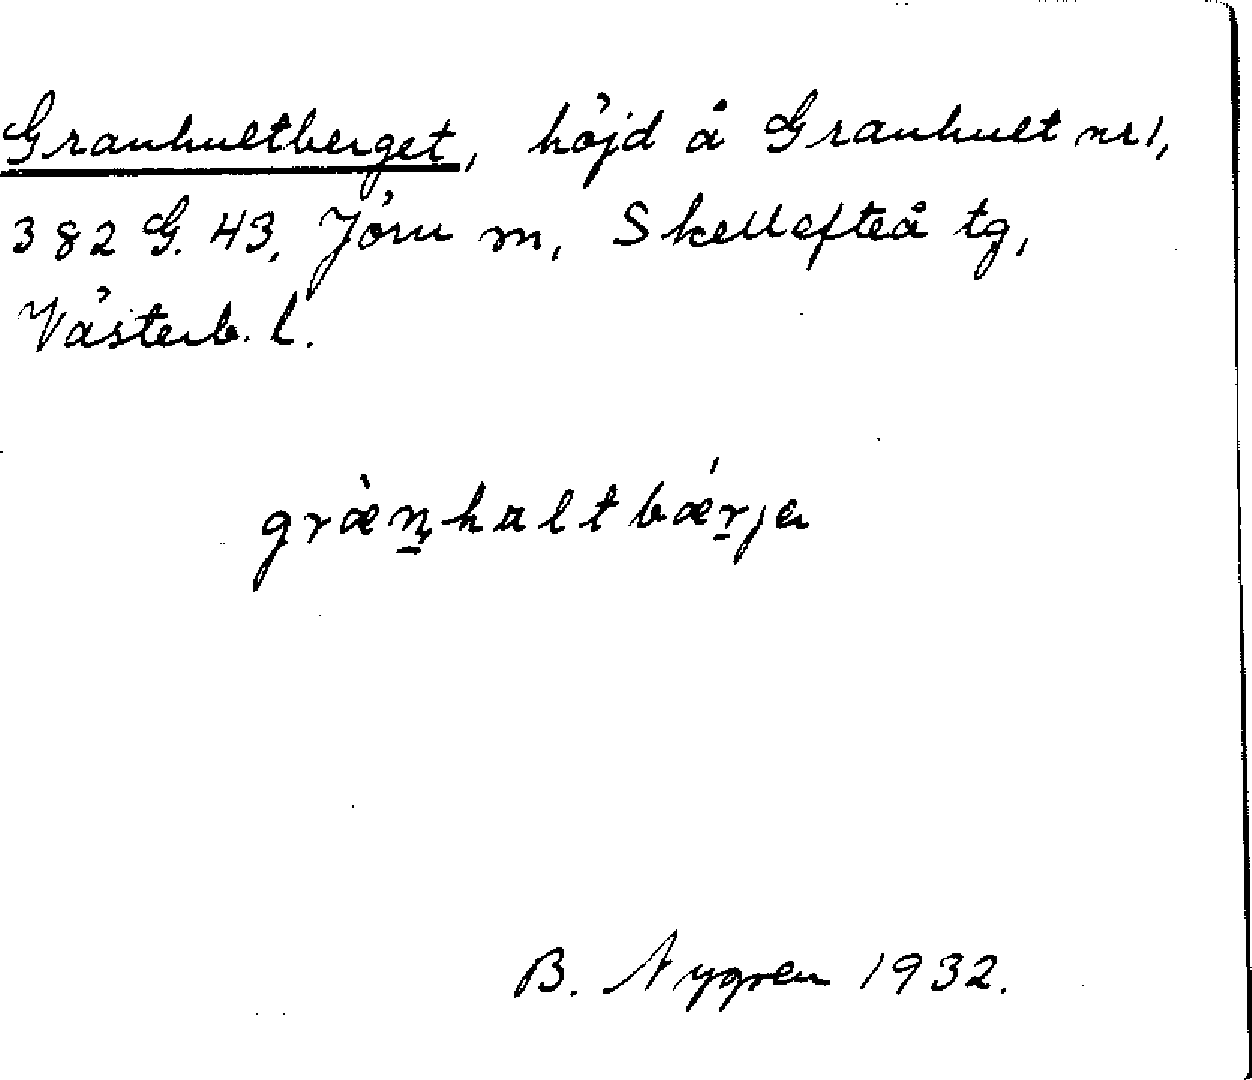 Granhultberget, höjd å Granhult nr 1,
382 G. 43, Jörn m, Skellefteå tg,
Västerb. l.
græ̀n̲haltbǽr̲ja
B. Nygren 1932.